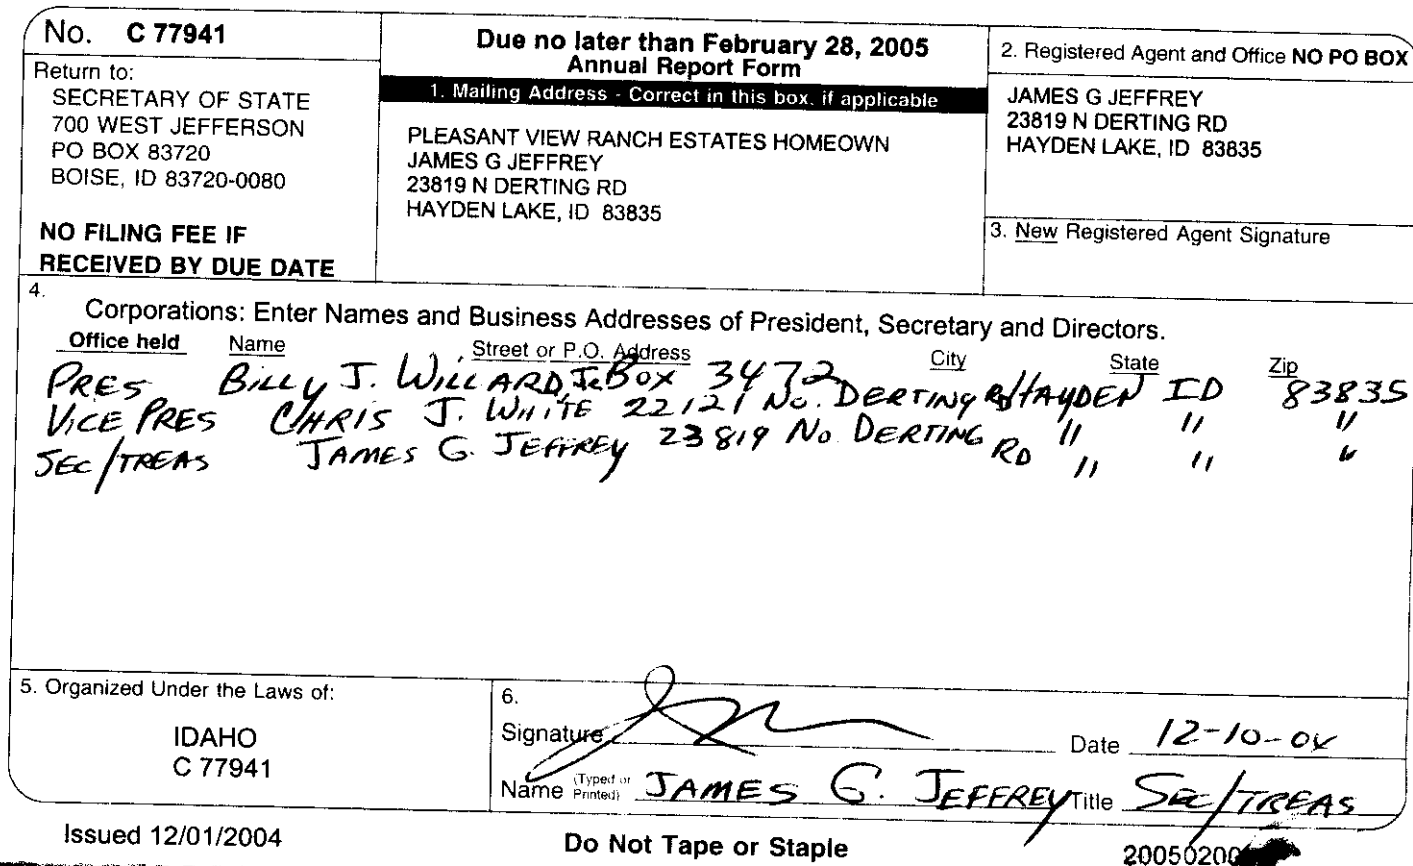 No. C 77941
Return to:
SECRETARY OF STATE
700 WEST JEFFERSON
PO BOX 83720
BOISE, ID 83720-0080
NO FILING FEE IF
RECEIVED BY DUE DATE
Due no later than February 28, 2005
Annual Report Form
1. Mailing Address - Correct in this box, if applicable
PLEASANT VIEW RANCH ESTATES HOMEOWN
JAMES G JEFFREY
23819 N DERTING RD
HAYDEN LAKE, ID 83835
2. Registered Agent and Office NO PO BOX
JAMES G JEFFREY
23819 N DERTING RD
HAYDEN LAKE, ID 83835
3. New Registered Agent Signature
4.
Corporations: Enter Names and Business Addresses of President, Secretary and Directors.
Office held Name Street or P.O. Address City State Zip
PRES BILLY J. WILLARD, JR BOX 3472 HAYDEN ID 83835
VICE PRES CHRIS J. WHITE 22121 NO. DERTING RD " " "
SEC/TREAS JAMES G. JEFFREY 23819 NO. DERTING RD " " "
5. Organized Under the Laws of:
IDAHO
C 77941
6.
Signature Date 12-10-04
Name (Typed or Printed) JAMES G. JEFFREY Title SEC/TREAS
Issued 12/01/2004
Do Not Tape or Staple
20050200